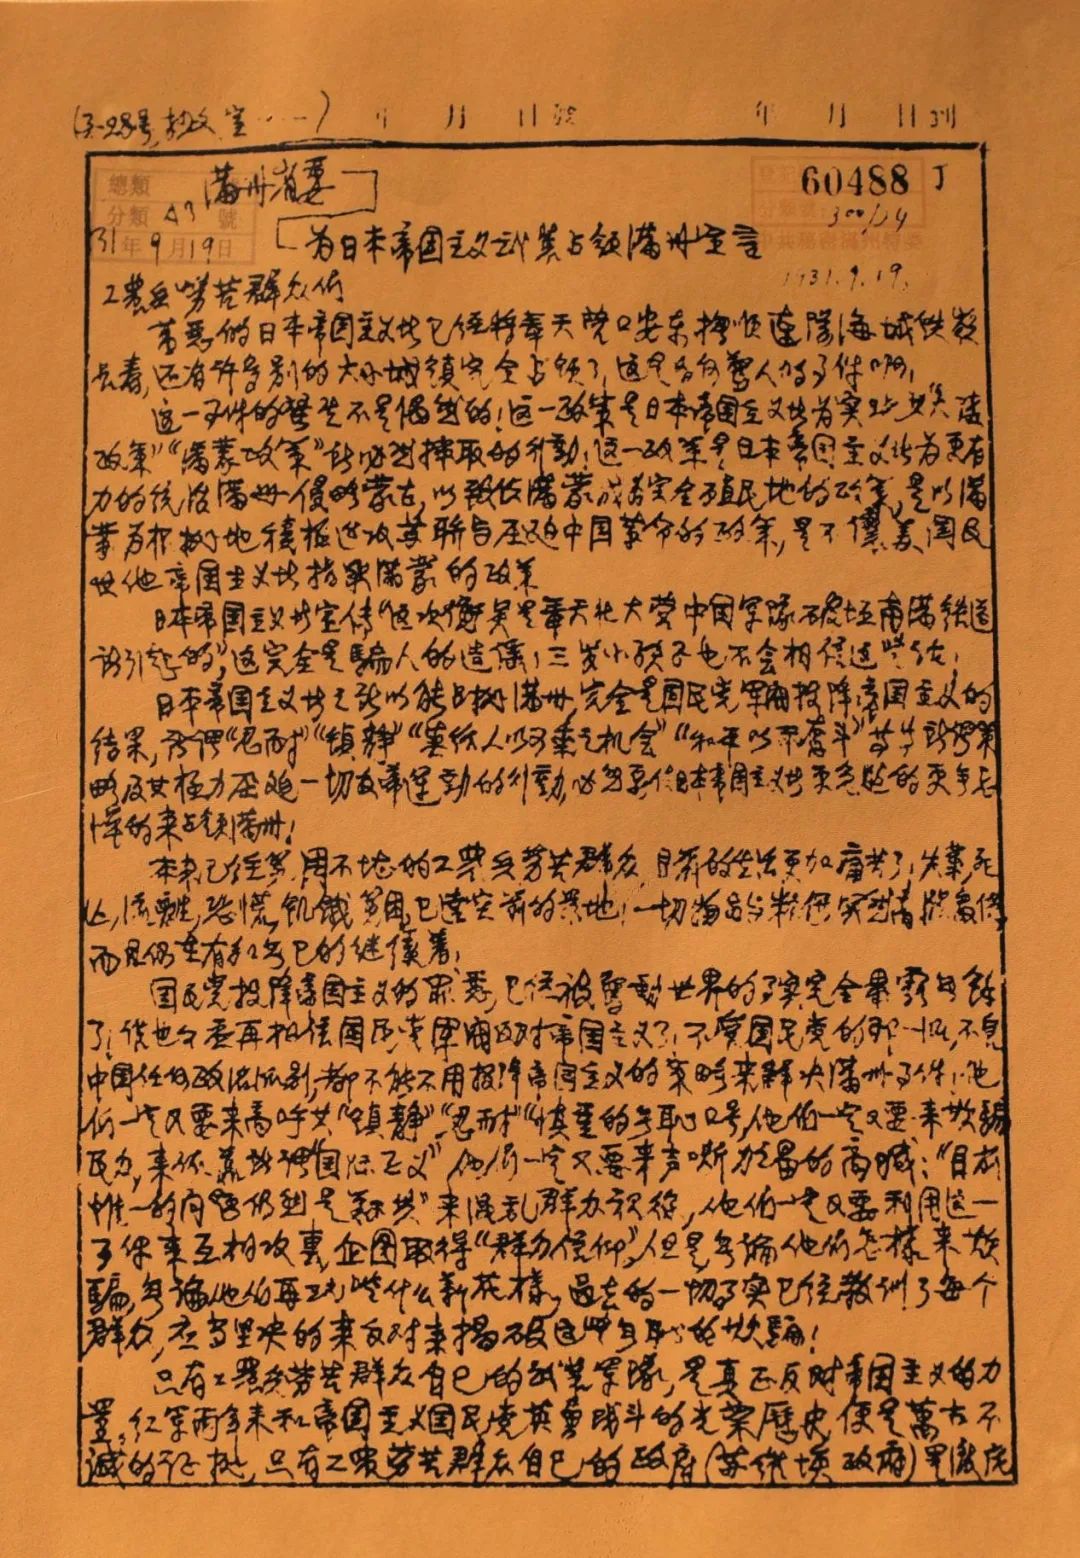 年 月 日 年 月 日到
總類 滿州省委 60488 丁
分類 A3 號 300/14
31年9月19日 为日本帝国主义武装占领滿州宣言
1931.9.19.
工農兵劳苦群众们
萬恶的日本帝国主义者已经将奉天营口安东撫順遼陽海城铁嶺
長春,还有许多别的大小城镇完全占领了,这是多么驚人的事件啊!
这一事件的發生不是偶然的!这一政策是日本帝国主义者为实现"大陸
政策""滿蒙政策"所必然採取的行動!这一政策是日本帝国主义者为更有
力的统治滿州,侵略蒙古,以致使滿蒙成为完全殖民地的政策,是以滿
蒙为根据地積極進攻蘇联与压迫中国革命的政策,是不讓美国及
其他帝国主义者指染滿蒙的政策
日本帝国主义者宣传"这次衝突是奉天北大营中国军隊破坏南满铁道
所引起的",这完全是騙人的造谣,三岁小孩子也不会相信这些话!
日本帝国主义者之所以能占据滿州,完全是国民党军阀投降帝国主义的
结果,所谓"忍耐""镇静""莫给人以可乘之机会""和平以示奮斗"等等
略及其極力压迫一切反帝運動的行動,必然要使日本帝国主义者更急速的更无忌
惮的来占领滿州!
本来已经穷困不堪的工農兵劳苦群众,目前的生活更加痛苦了!失業死
亡,流離,恐慌,飢餓穷困,已達空前的景地!一切物品与粮食突然高
而且仍在有加无已的继續着!
国民党投降帝国主义的罪恶,已经被驚動世界的事实完全暴露无餘
了!谁也不要再相信国民党军阀反对帝国主义了!不管国民党的那一派,不管
中国任何政治派别,都不能不用投降帝国主义的策略来解决滿州事件!他
们一定又要来高呼其"镇静""忍耐""慎重的无耻口号,他们一定又要来欺騙
民众,来依靠所谓"国际正义"他们一定又要来声嘶力竭的高喊:"目前
惟一的问题仍然是剿共"来混乱群众视線,他们一定又要利用这一
事件来互相攻擊,企图取得"群众信仰",但是无論他们怎樣来欺
騙,无論他们再玩些什么新花樣,過去的一切事实已经教訓了每个
群众,应当坚决的来反对来揭破这些无耻的欺騙!
只有工農兵劳苦群众自己的武装军隊,是真正反对帝国主义的力
量,红军两年来和帝国主义国民党英勇战斗的光荣歷史,便是萬古不
滅的证据,只有工農劳苦群众自己的政府(苏维埃政府)是徹底